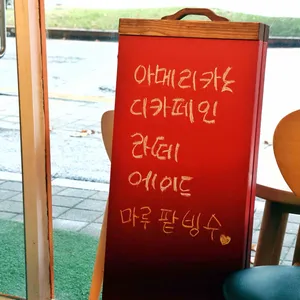 아메리카노
디카페인
라떼
에이드
마루 팥빙수